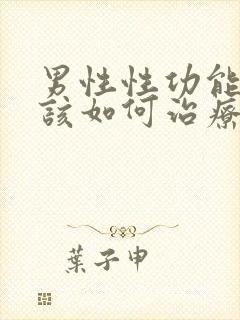 男性性功能
該如何治療
葉子申